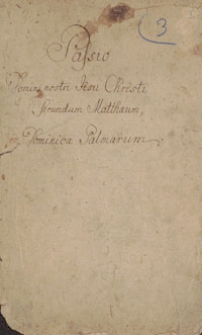 3
Passio
Domini nostri Jesu Christi
secundum Matthæum,
Dominica Palmarum